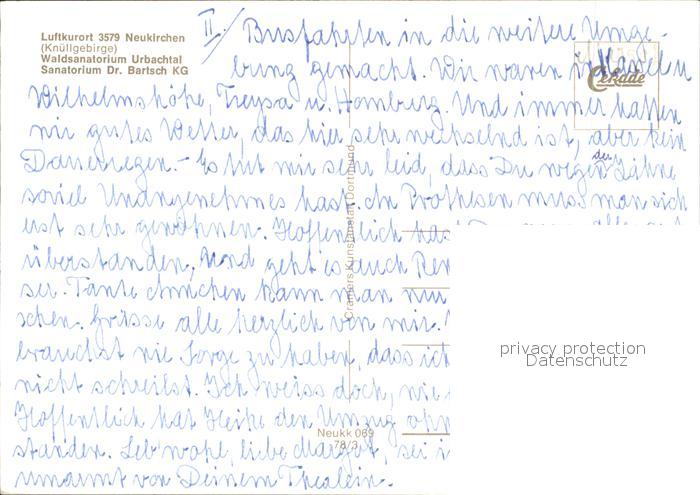 Luftkurort 3579 Neukirchen
(Knüllgebirge)
Waldsanatorium Urbachtal
Sanatorium Dr. Bartsch KG
II/ Busfahrten in die weitere Umge-
bung gemacht. Wir waren in Kassel u
Wilhelmshöhe, Treysa u. Homburg. Und immer hatten
wir gutes Wetter, das hier sehr wechselnd ist, aber kein
Dauerregen. - Es tut mir sehr leid, dass Du wegen der Zähne
soviel Unangenehmes hast. An Prothesen muss man sich
erst sehr gewöhnen. Hoffentlich has
überstanden, Und geht es auch Ren
ser. Tante Annchen kann man nur
schen. Grüsse alle herzlich von mir.
brauchst nie Sorge zu haben, dass ich
nicht schreibst. Ich weiss doch, wie
Hoffentlich hat Heike den Umzug ohn
standen. Leb wohl, liebe Margret, sei i
umarmt von Deinem Thealein.
Cekade
Cramers Kunstanstalt Dortmund
Neukk 069
78/3
privacy protection
Datenschutz